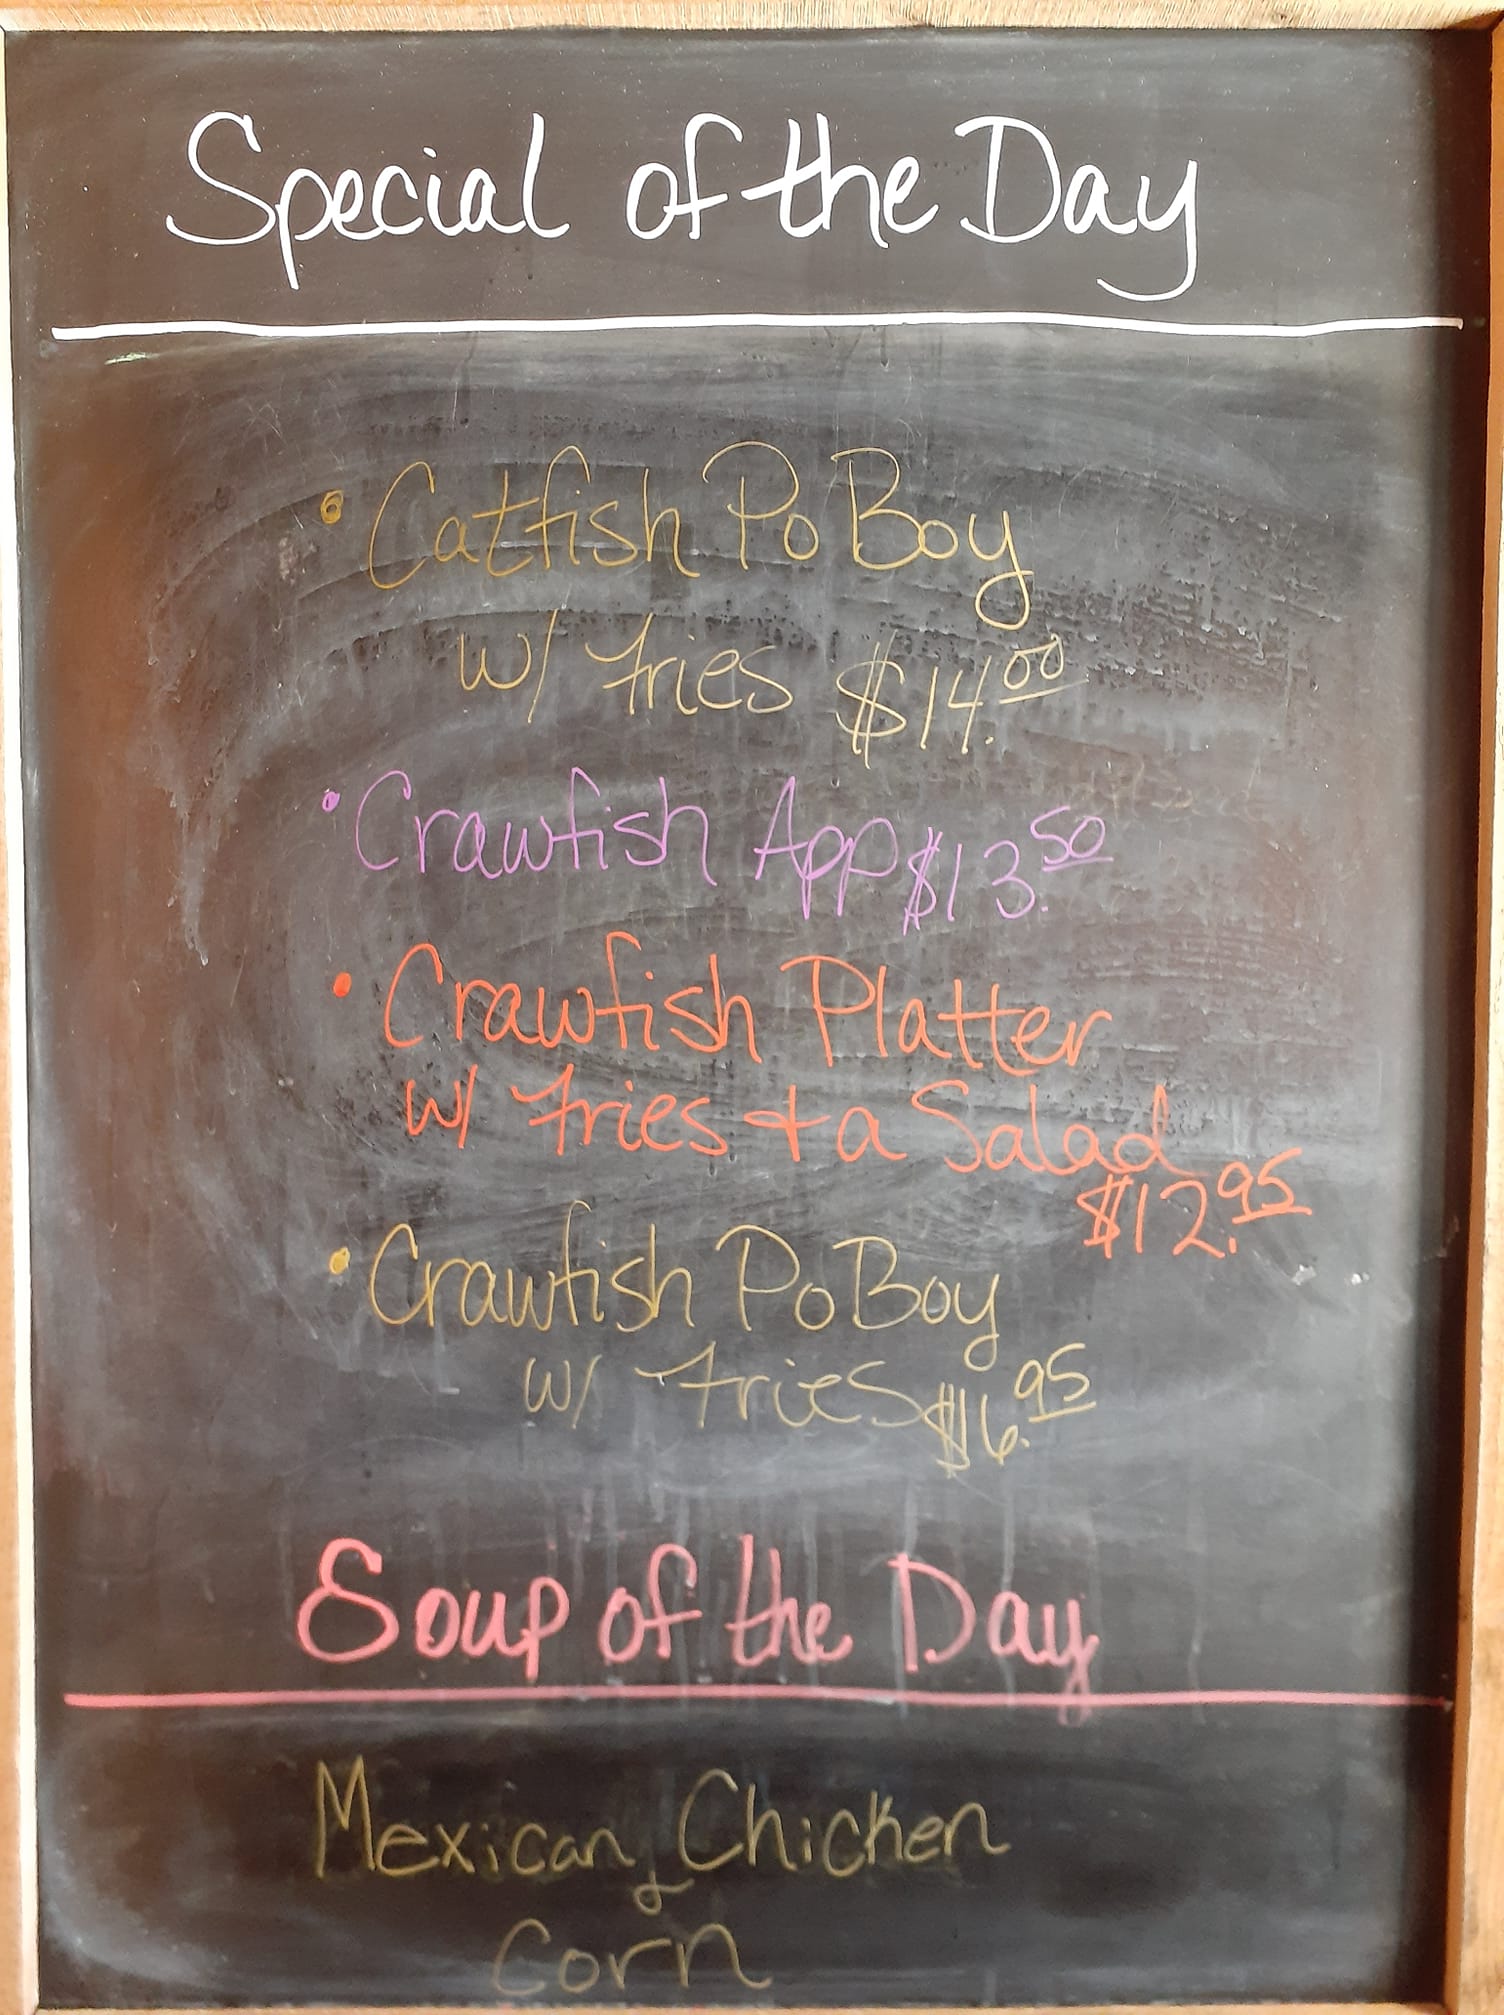 Special of the Day
• Catfish Po Boy
w/ Fries $14.00
• Crawfish App $13.50
• Crawfish Platter
w/ Fries + a Salad
$12.95
• Crawfish Po Boy
w/ Fries $16.95
Soup of the Day
Mexican Chicken
&
Corn